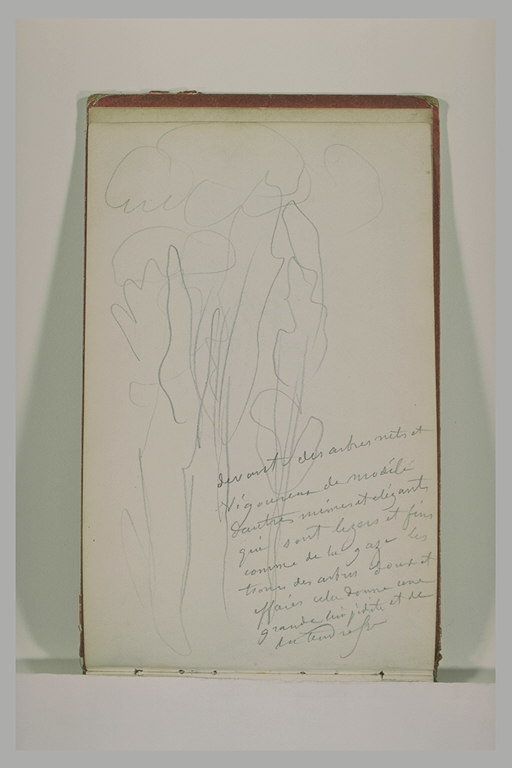 devant des arbres nets et
vigoureux de modelé
d'autres minces et élégants
qui sont legers et fins
comme de la gaze les
troncs des arbres doux et
effacés cela donne une
grande limpidité et de
la tendresse